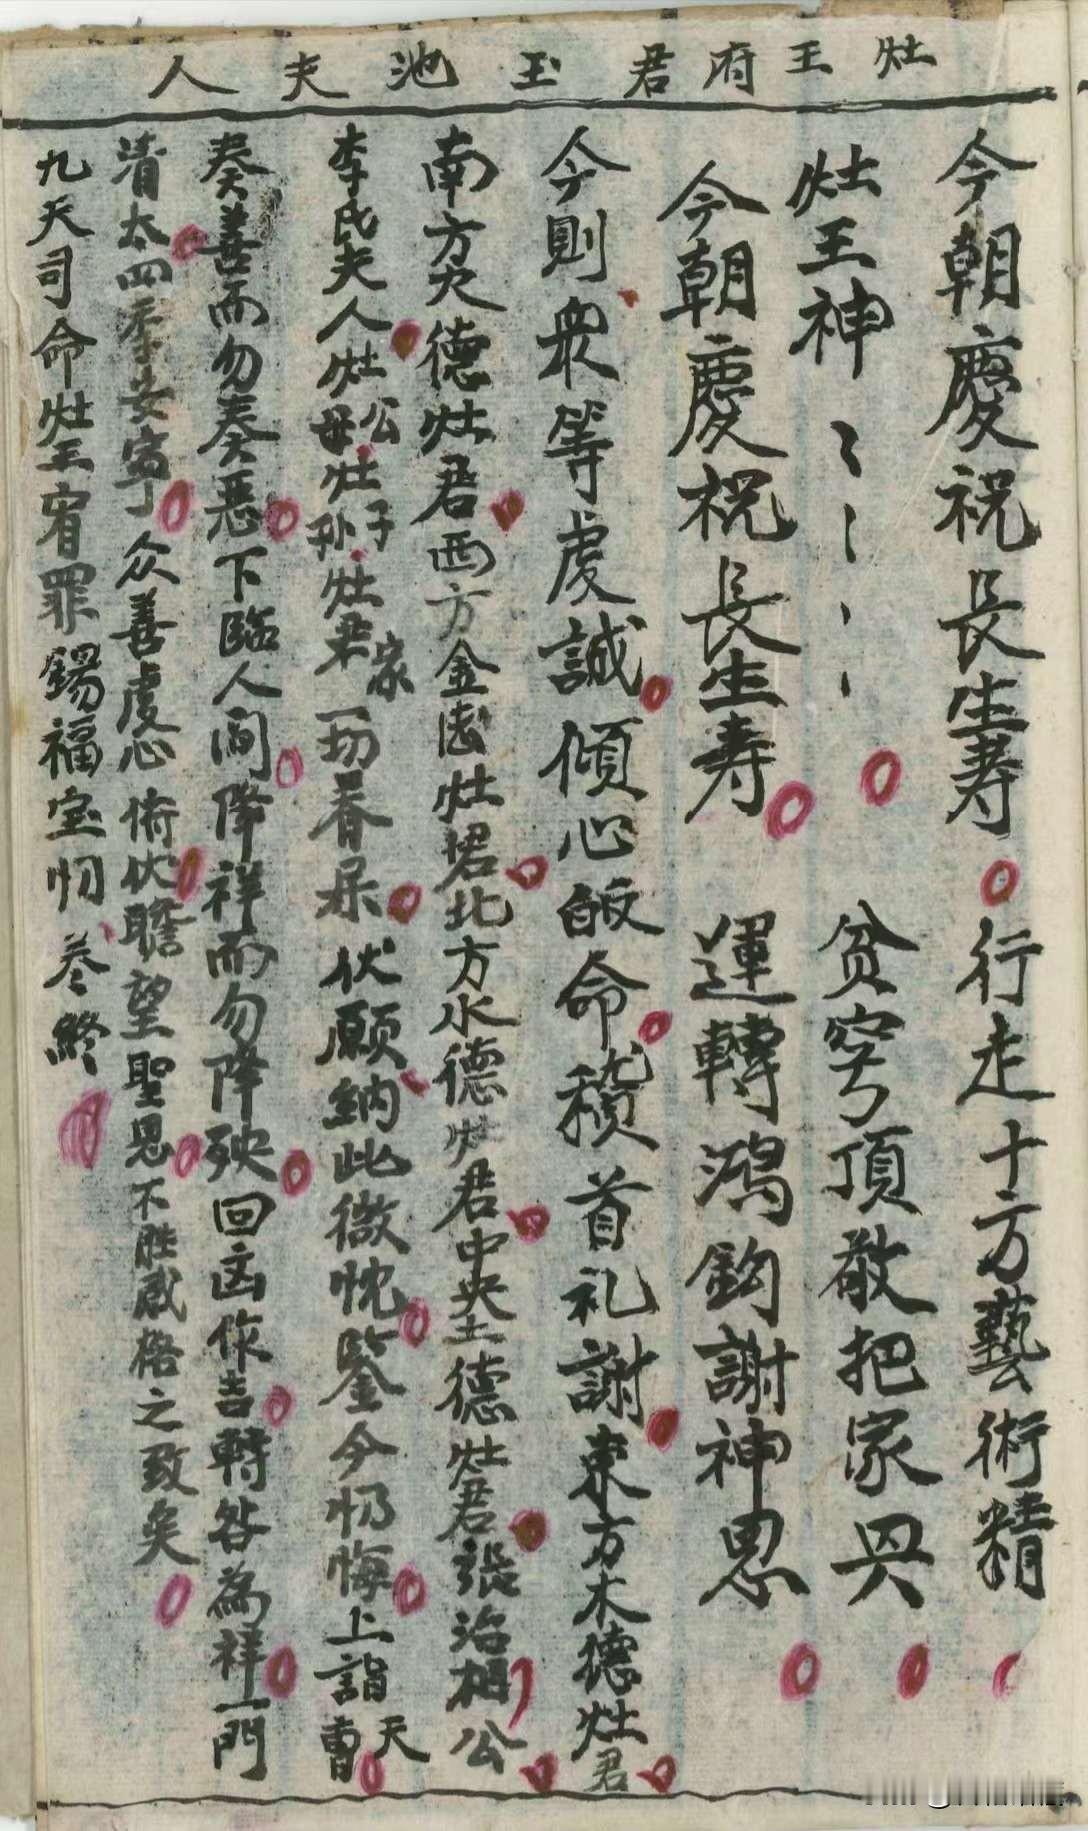 灶王府君玉池夫人
今朝慶祝長生寿行走十方藝術精
灶王神貧穷頂敬把家興
今朝慶祝長生寿運轉鴻鈞謝神恩
今則眾等虔誠傾心皈命稽首礼謝東方木德灶君
南方火德灶君西方金德灶君北方水德灶君中央土德灶君張治相公
李氏夫人灶公灶母灶子灶孙灶君家一切眷属伏願納此微忱鉴今忉悔上詣天曹
奏善而勿奏惡下臨人间降祥而勿降殃回凶作吉轉咎為祥一門
清太四季安寧众善虔心俯伏瞻望聖恩不胜感格之致矣
九天司命灶王宥罪錫福宝忏終